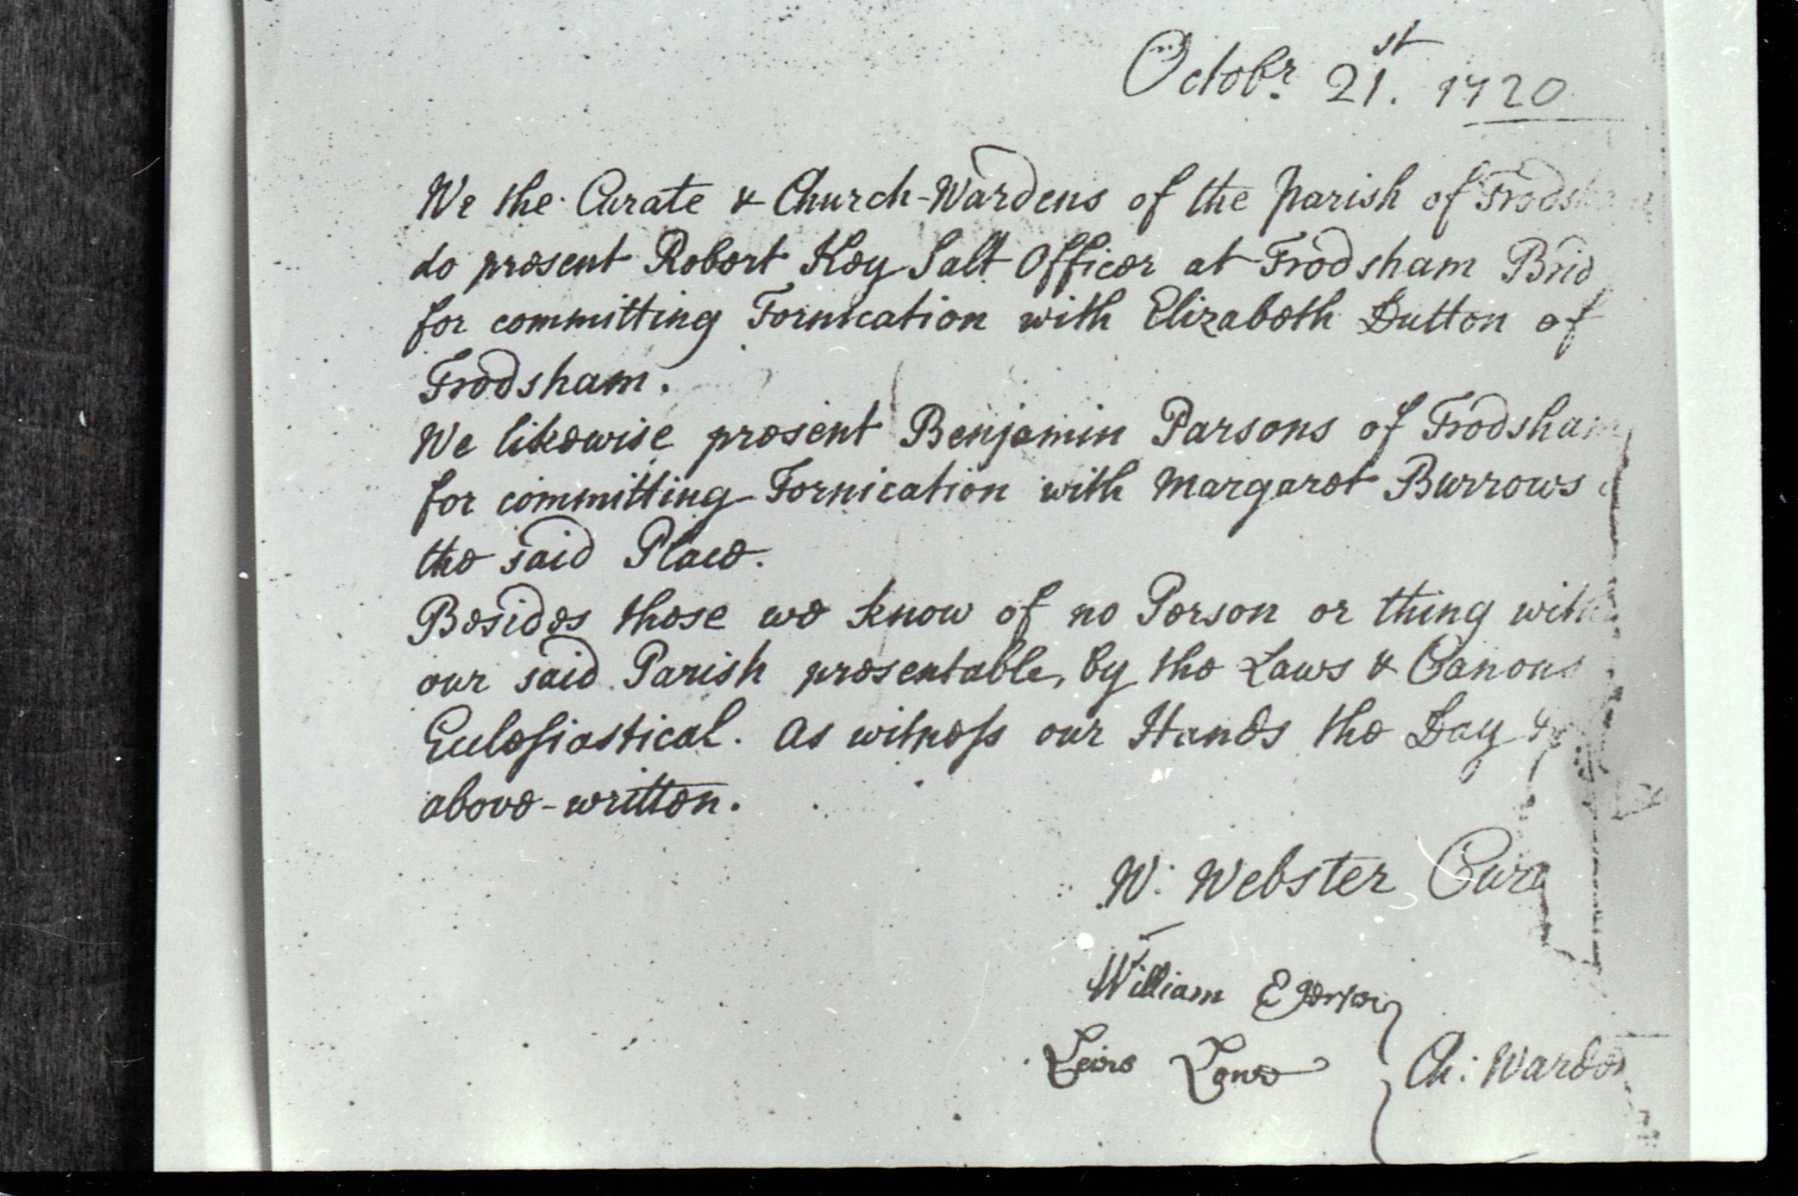 Octobr. 21st. 1720
We the Curate & Church-Wardens of the Parish of Frodsham
do present Robert Key Salt Officer at Frodsham Brid
for committing Fornication with Elizabeth Dutton of
Frodsham.
We likewise present Benjamin Parsons of Frodsham
for committing Fornication with Margaret Burrows
the said Place.
Besides these we know of no Person or thing with
our said Parish presentable, by the Laws & Canons
Ecclesiastical. As witness our Hands the Day &
above-written.
W: Webster Cura
William
Ch: Warden